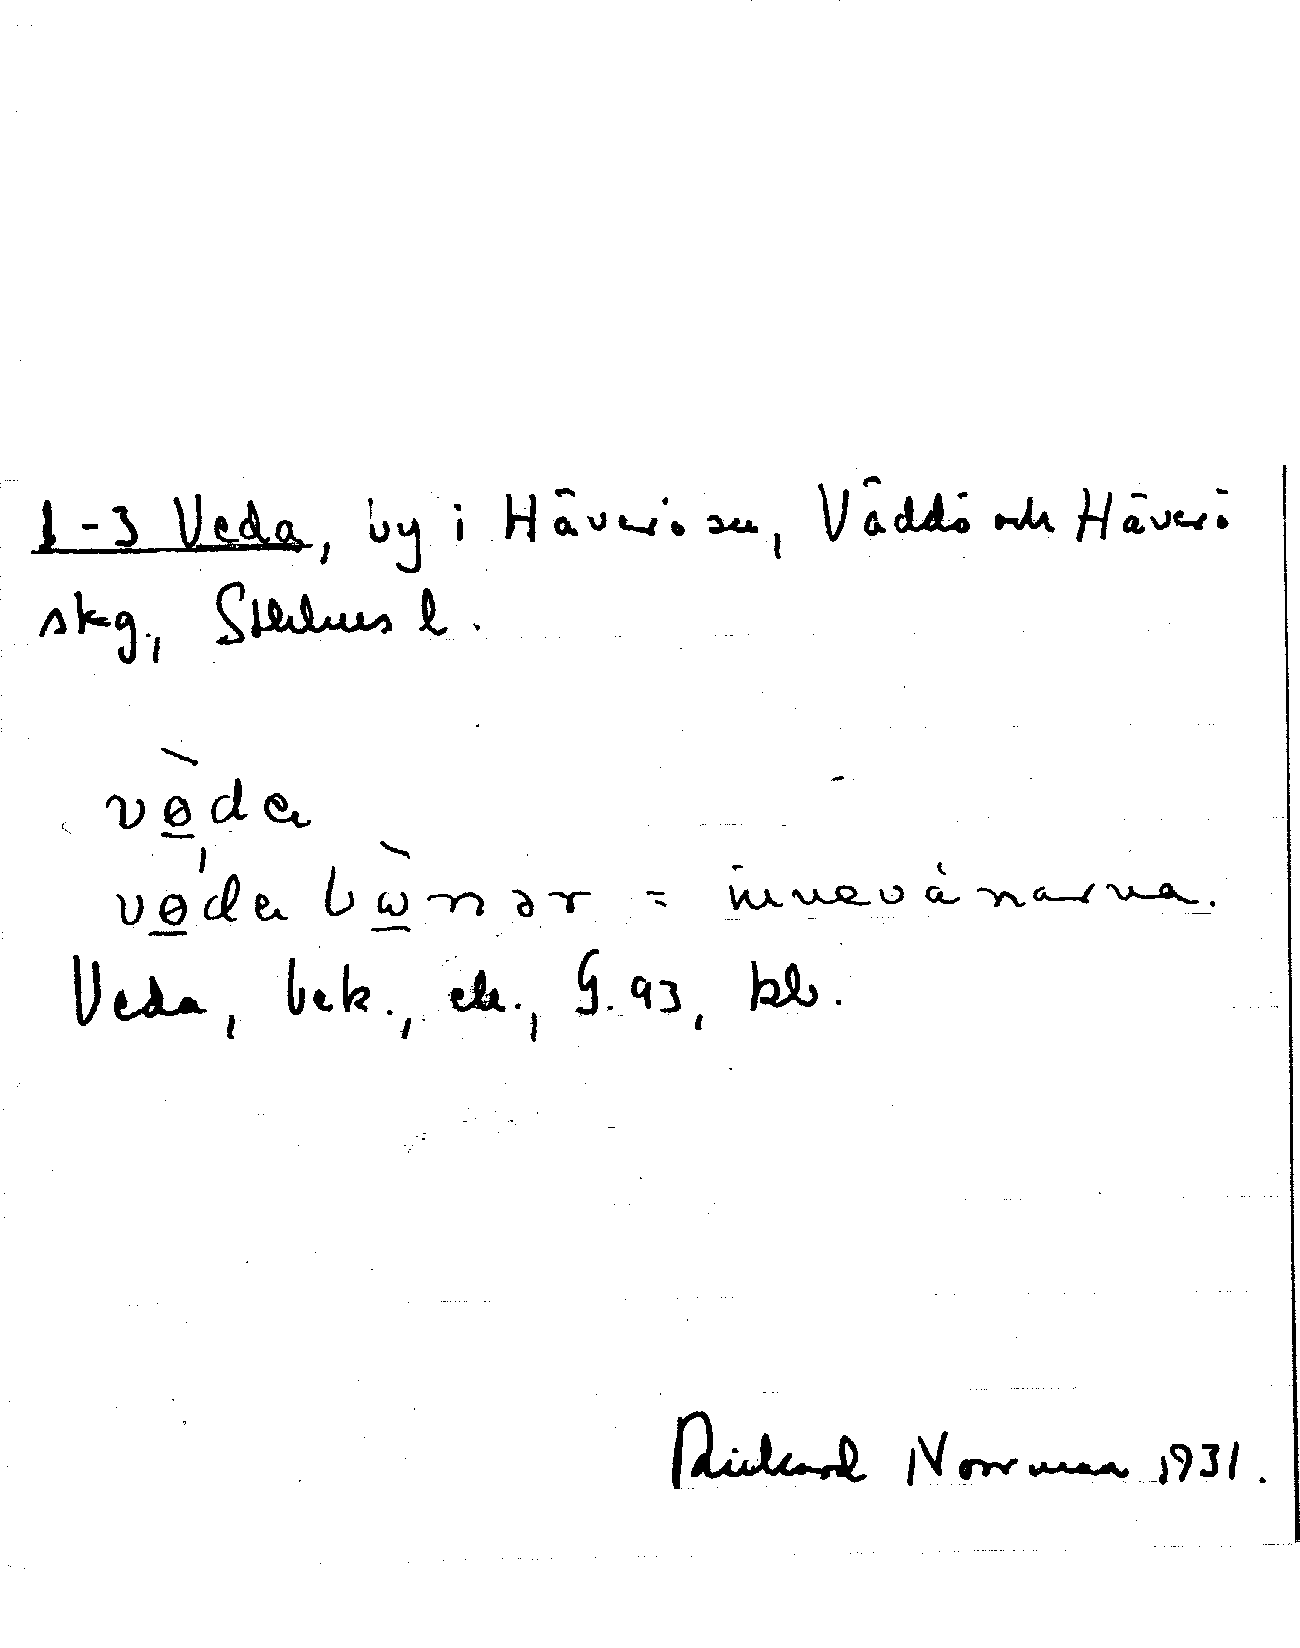 1-3 Veda, by i Häverö sn, Väddö och Häverö
skg., Sthlms l.
vø̲̀da
vǿ̲dabὼ̲nər = innevånarna.
Veda, bek., ek., G. 93, kb.
Rickard Norrman 1931.